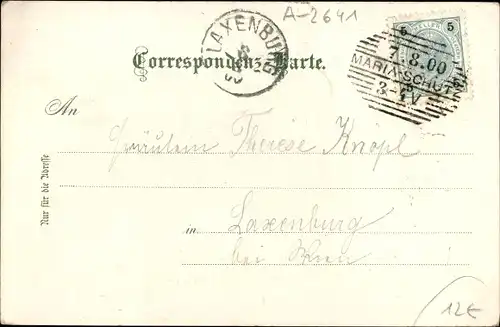 A-2641
LAXENBURG
5 5
7.8.00
MARIA-SCHUTZ
3-4V
Correspondenz-Karte.
An
Fräulein Therese Knöpl
Nur für die Adresse
in Laxenburg
bei Wien
12€